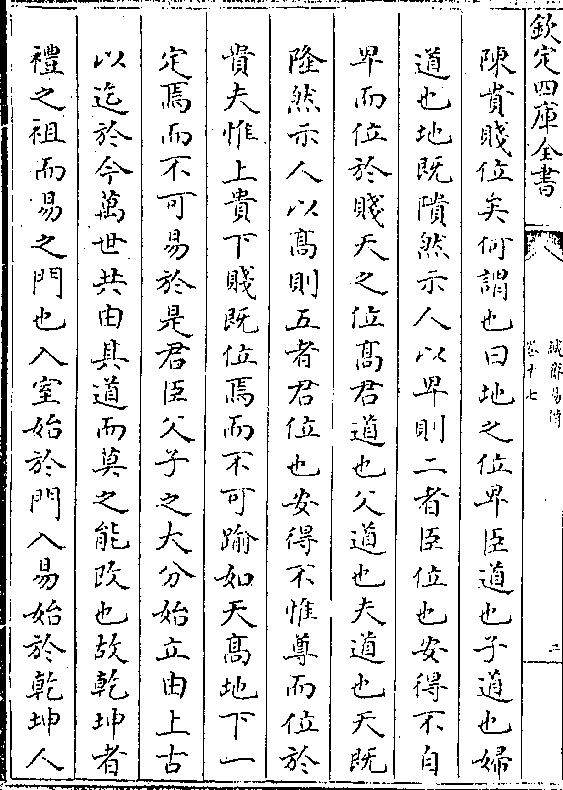 欽定四庫全書
誠齋易傳
卷十七
二
陳貴賤位矣何謂也曰地之位卑臣道也子道也婦
道也地既隤然示人以卑則二者臣位也安得不自
卑而位於賤天之位髙君道也父道也夫道也天既
隆然示人以髙則五者君位也安得不惟尊而位於
貴夫惟上貴下賤既位焉而不可踰如天髙地下一
定焉而不可易於是君臣父子之大分始立由上古
以迄於今萬世共由其道而莫之能改也故乾坤者
禮之祖而易之門也入室始於門入易始於乾坤人